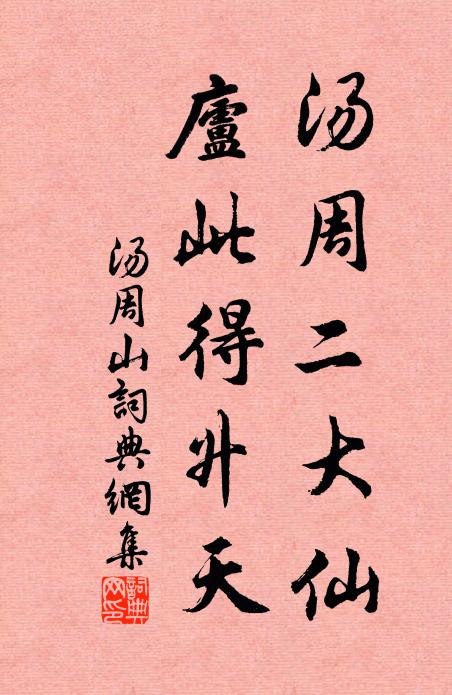 汤周二大仙
廬此得升天
汤周山詞典網集
詞典
网印